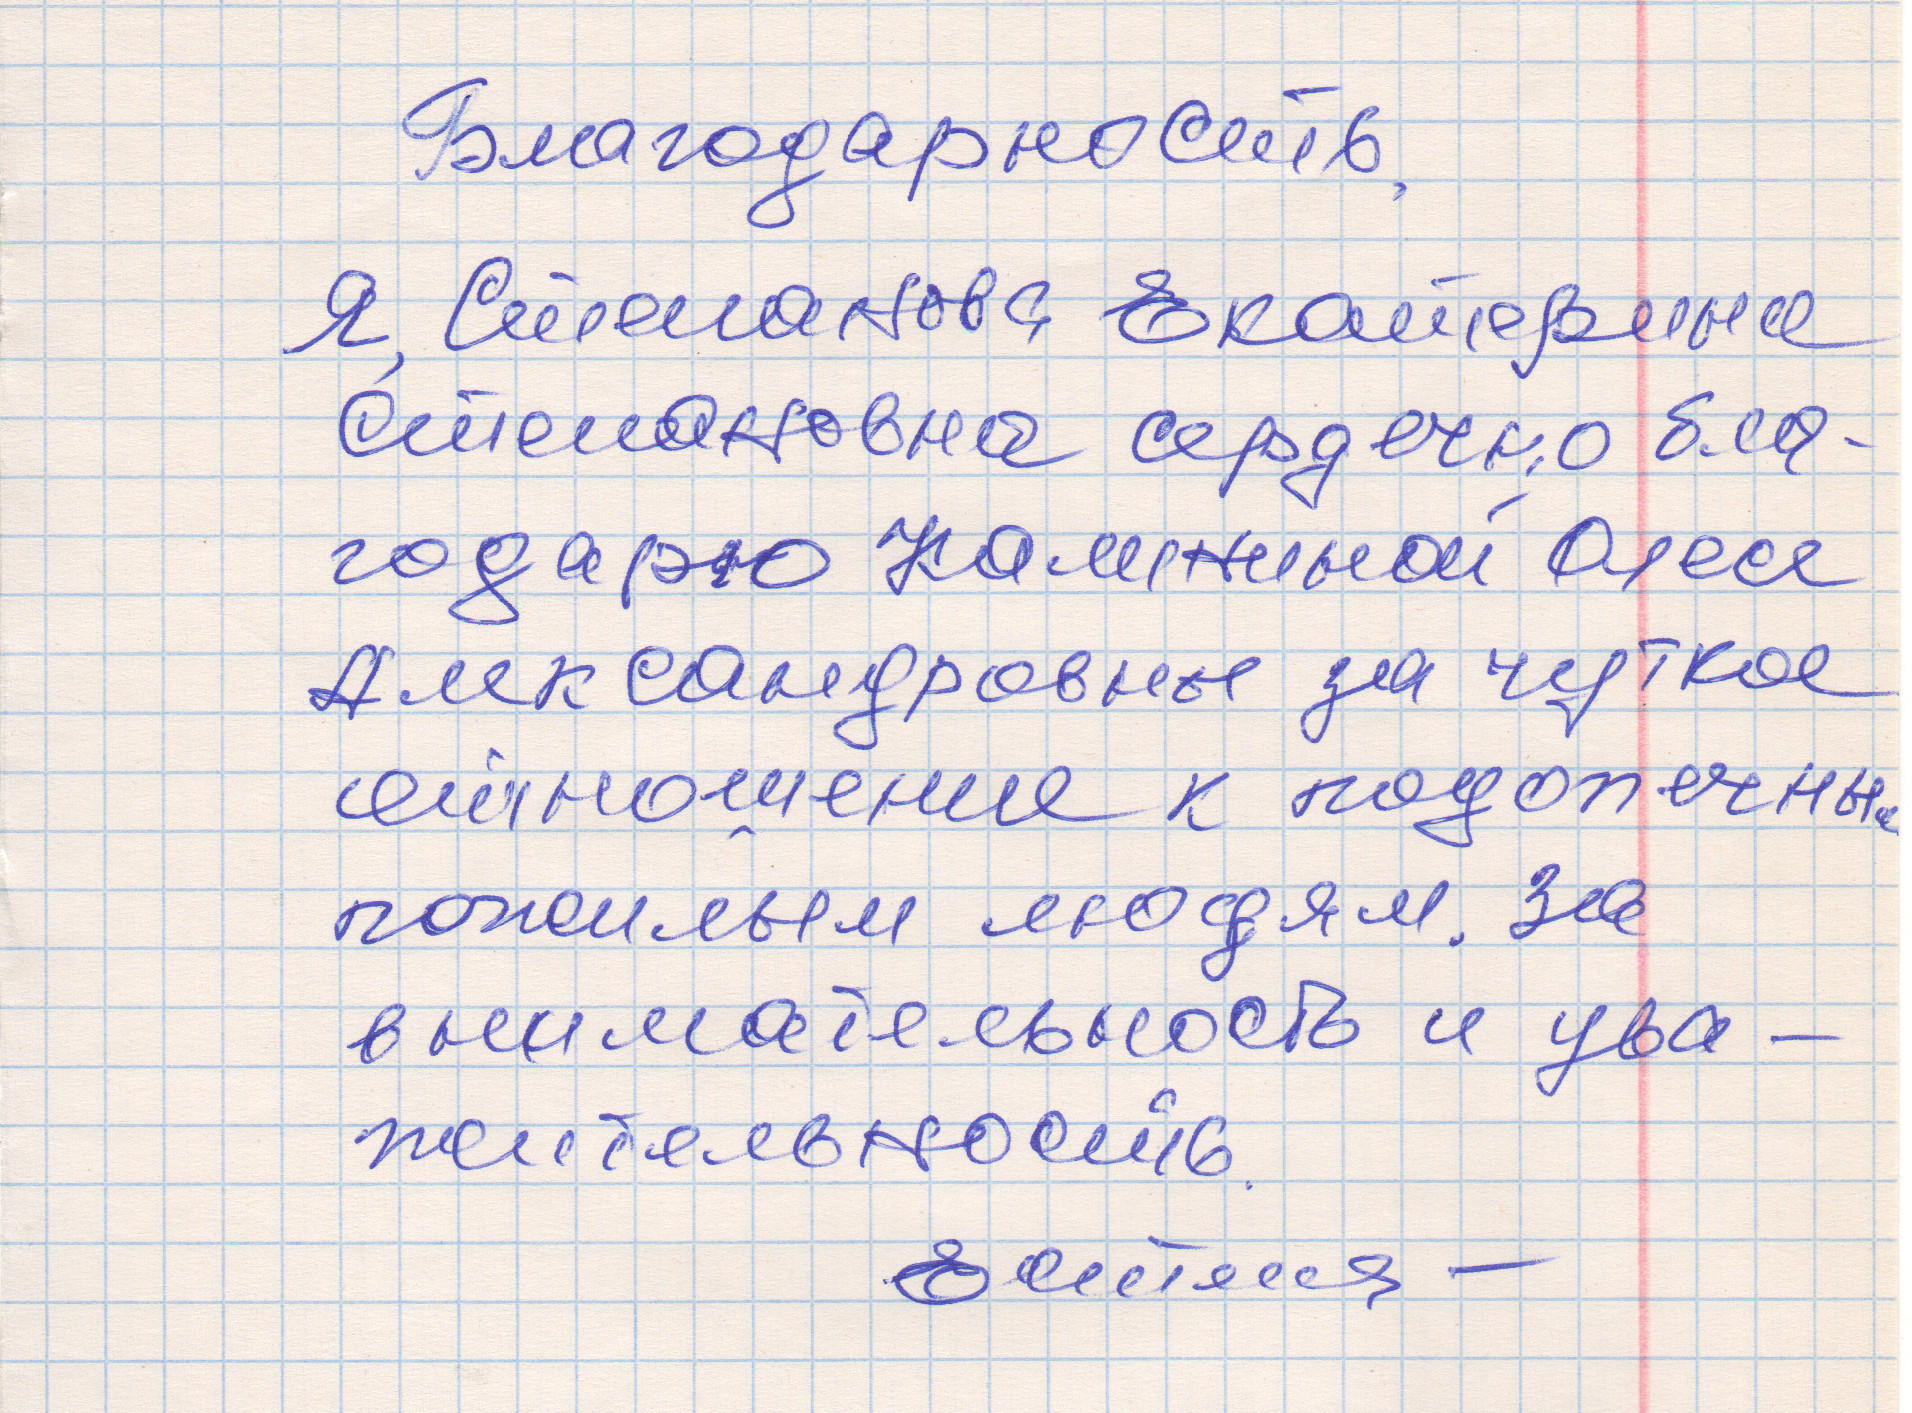 Благодарность,
Я, Степанова Екатерина
Степановна сердечно бла-
годарю Каминной Олеся
Алксандровны за чуткое
отношение к подопечным
пожилым людям. За
внимательность и ува-
жительность.